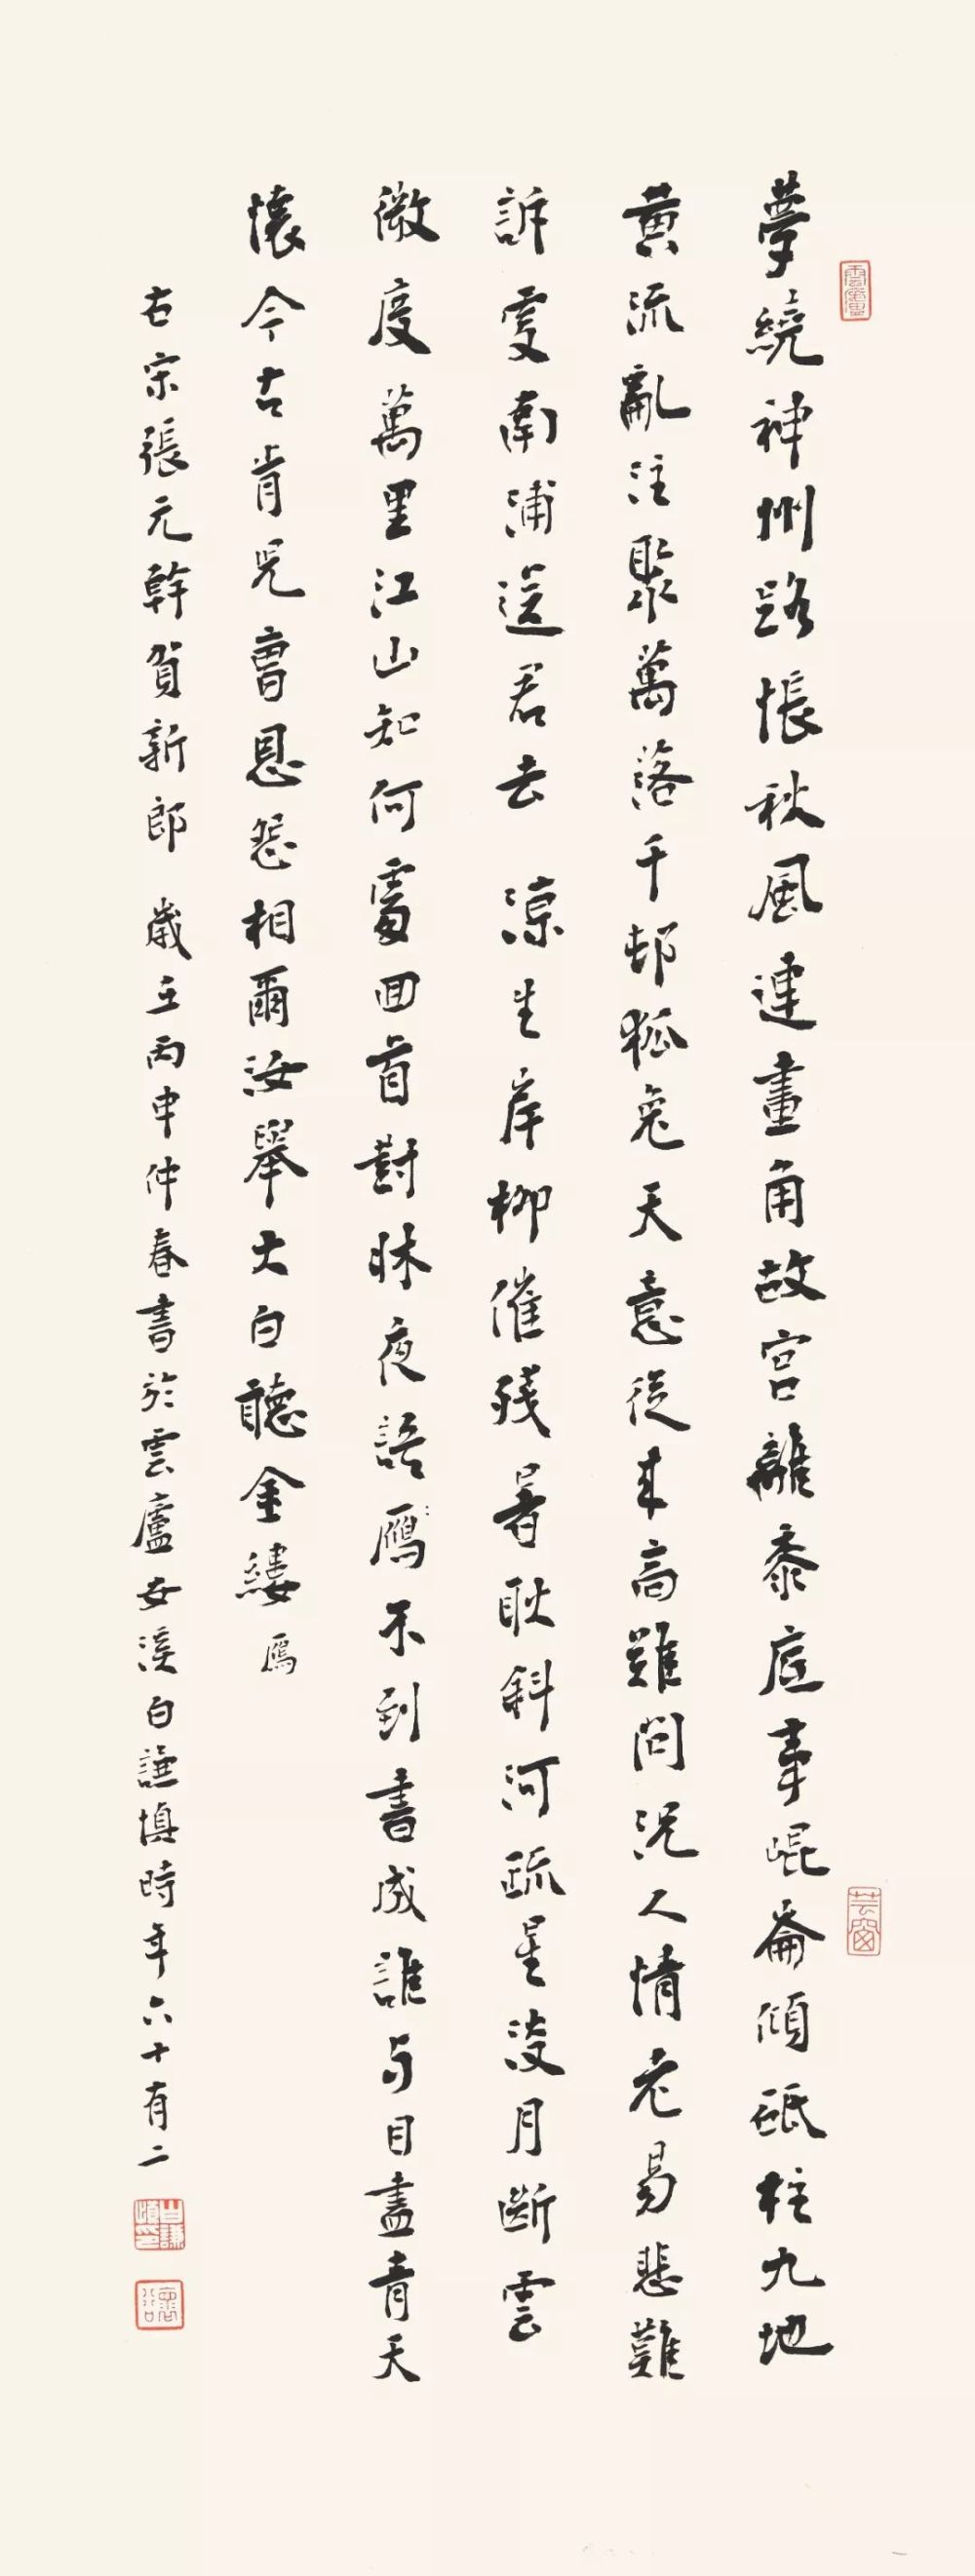 夢繞神州路悵秋風連畫角故宮離黍底事崐崙傾砥柱九地
黄流亂注聚萬落千邨狐兔天意從来高難問況人情老易悲難
訴更南浦送君去 涼生岸柳催殘暑耿斜河疏星淡月斷雲
微度萬里江山知何處回首對牀夜語鴈不到書成誰与目盡青天
懷今古肯兒曹恩怨相爾汝舉大白聽金縷 鴈
右宋張元幹賀新郎 歲在丙申仲春書於雲廬安溪白謙慎時年六十有二
芸窗
白謙慎印